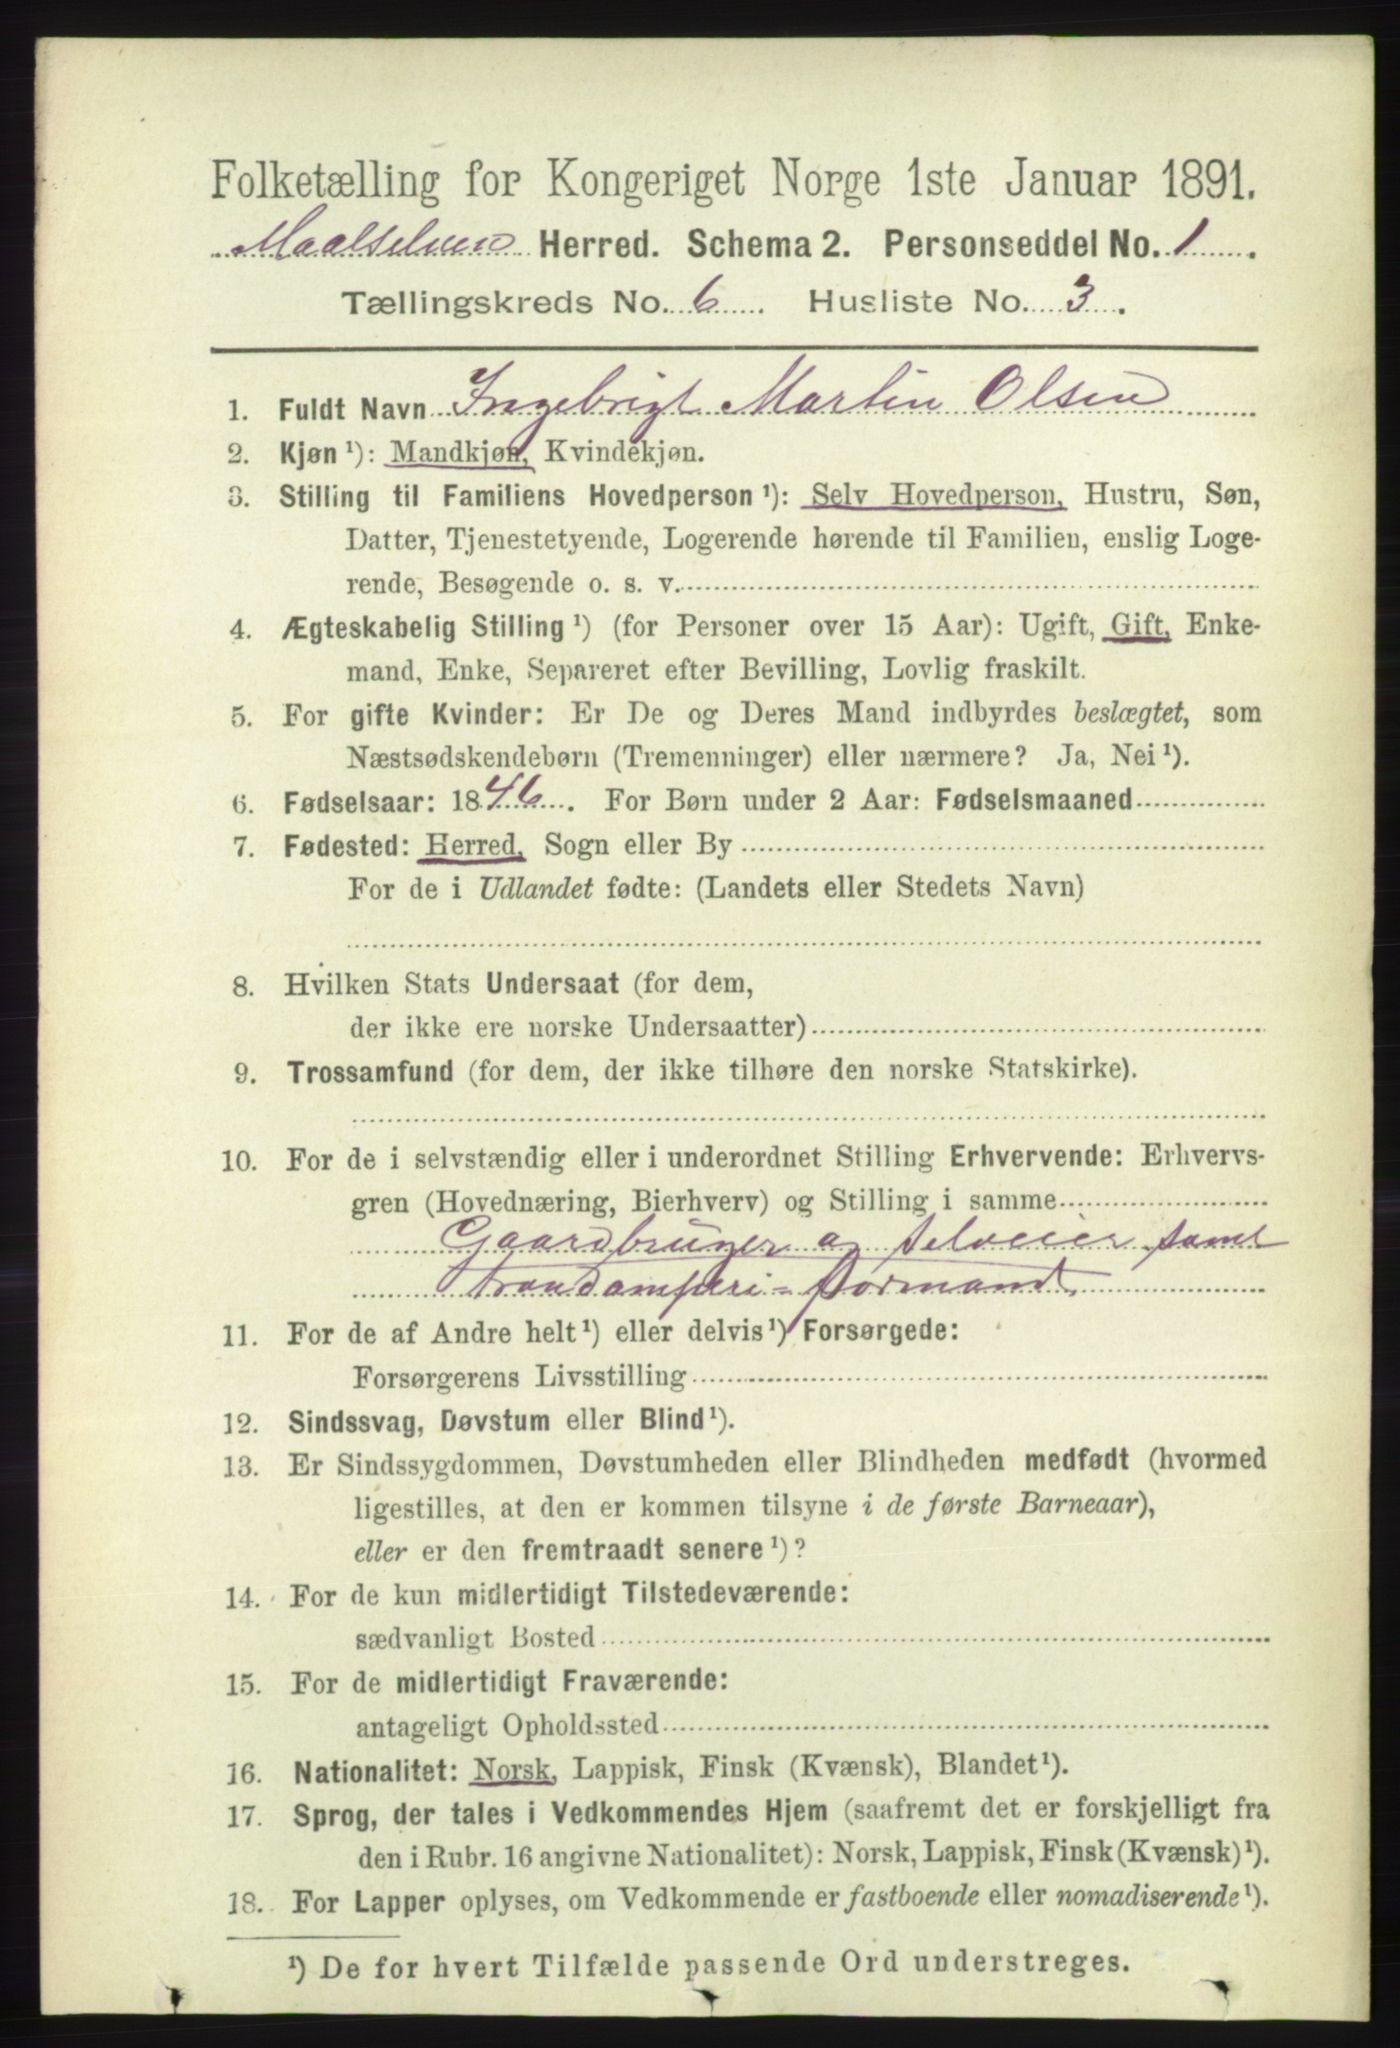 Folketælling for Kongeriget Norge 1ste Januar 1891.
Maalselven Herred. Schema 2. Personseddel No. 1
Tællingskreds No. 6. Husliste No. 3.
1. Fuldt Navn Ingebrigt Martin Olsen
2. Kjøn ¹): Mandkjøn, Kvindekjøn.
3. Stilling til Familiens Hovedperson ¹): Selv Hovedperson, Hustru, Søn,
Datter, Tjenestetyende, Logerende hørende til Familien, enslig Loge-
rende, Besøgende o. s. v.
4. Ægteskabelig Stilling ¹) (for Personer over 15 Aar): Ugift, Gift, Enke-
mand, Enke, Separeret efter Bevilling, Lovlig fraskilt.
5. For gifte Kvinder: Er De og Deres Mand indbyrdes beslægtet, som
Næstsødskendebørn (Tremenninger) eller nærmere? Ja, Nei ¹).
6. Fødselsaar: 1846. For Børn under 2 Aar: Fødselsmaaned
7. Fødested: Herred, Sogn eller By
For de i Udlandet fødte: (Landets eller Stedets Navn)
8. Hvilken Stats Undersaat (for dem,
der ikke ere norske Undersaatter)
9. Trossamfund (for dem, der ikke tilhøre den norske Statskirke).
10. For de i selvstændig eller i underordnet Stilling Erhvervende: Erhvervs-
gren (Hovednæring, Bierhverv) og Stilling i samme
Gaardbruger og Selveier samt
trandamperi-formand.
11. For de af Andre helt ¹) eller delvis ¹) Forsørgede:
Forsørgerens Livsstilling
12. Sindssvag, Døvstum eller Blind ¹).
13. Er Sindssygdommen, Døvstumheden eller Blindheden medfødt (hvormed
ligestilles, at den er kommen tilsyne i de første Barneaar),
eller er den fremtraadt senere ¹)?
14. For de kun midlertidigt Tilstedeværende:
sædvanligt Bosted
15. For de midlertidigt Fraværende:
antageligt Opholdssted
16. Nationalitet: Norsk, Lappisk, Finsk (Kvænsk), Blandet ¹).
17. Sprog, der tales i Vedkommendes Hjem (saafremt det er forskjelligt fra
den i Rubr. 16 angivne Nationalitet): Norsk, Lappisk, Finsk (Kvænsk) ¹).
18. For Lapper oplyses, om Vedkommende er fastboende eller nomadiserende ¹).
¹) De for hvert Tilfælde passende Ord understreges.